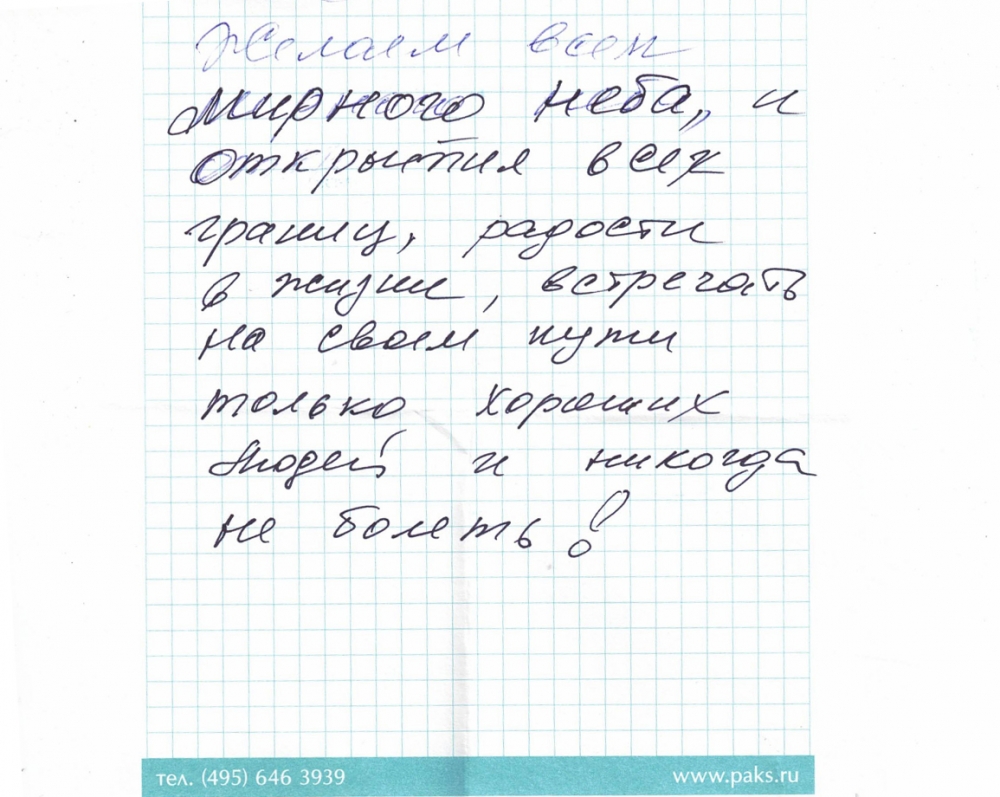 Желаем всем
мирного неба, и
открытия всех
границ, радости
в жизни, встречать
на своем пути
только хороших
людей и никогда
не болеть!
тел. (495) 646 3939 www.paks.ru